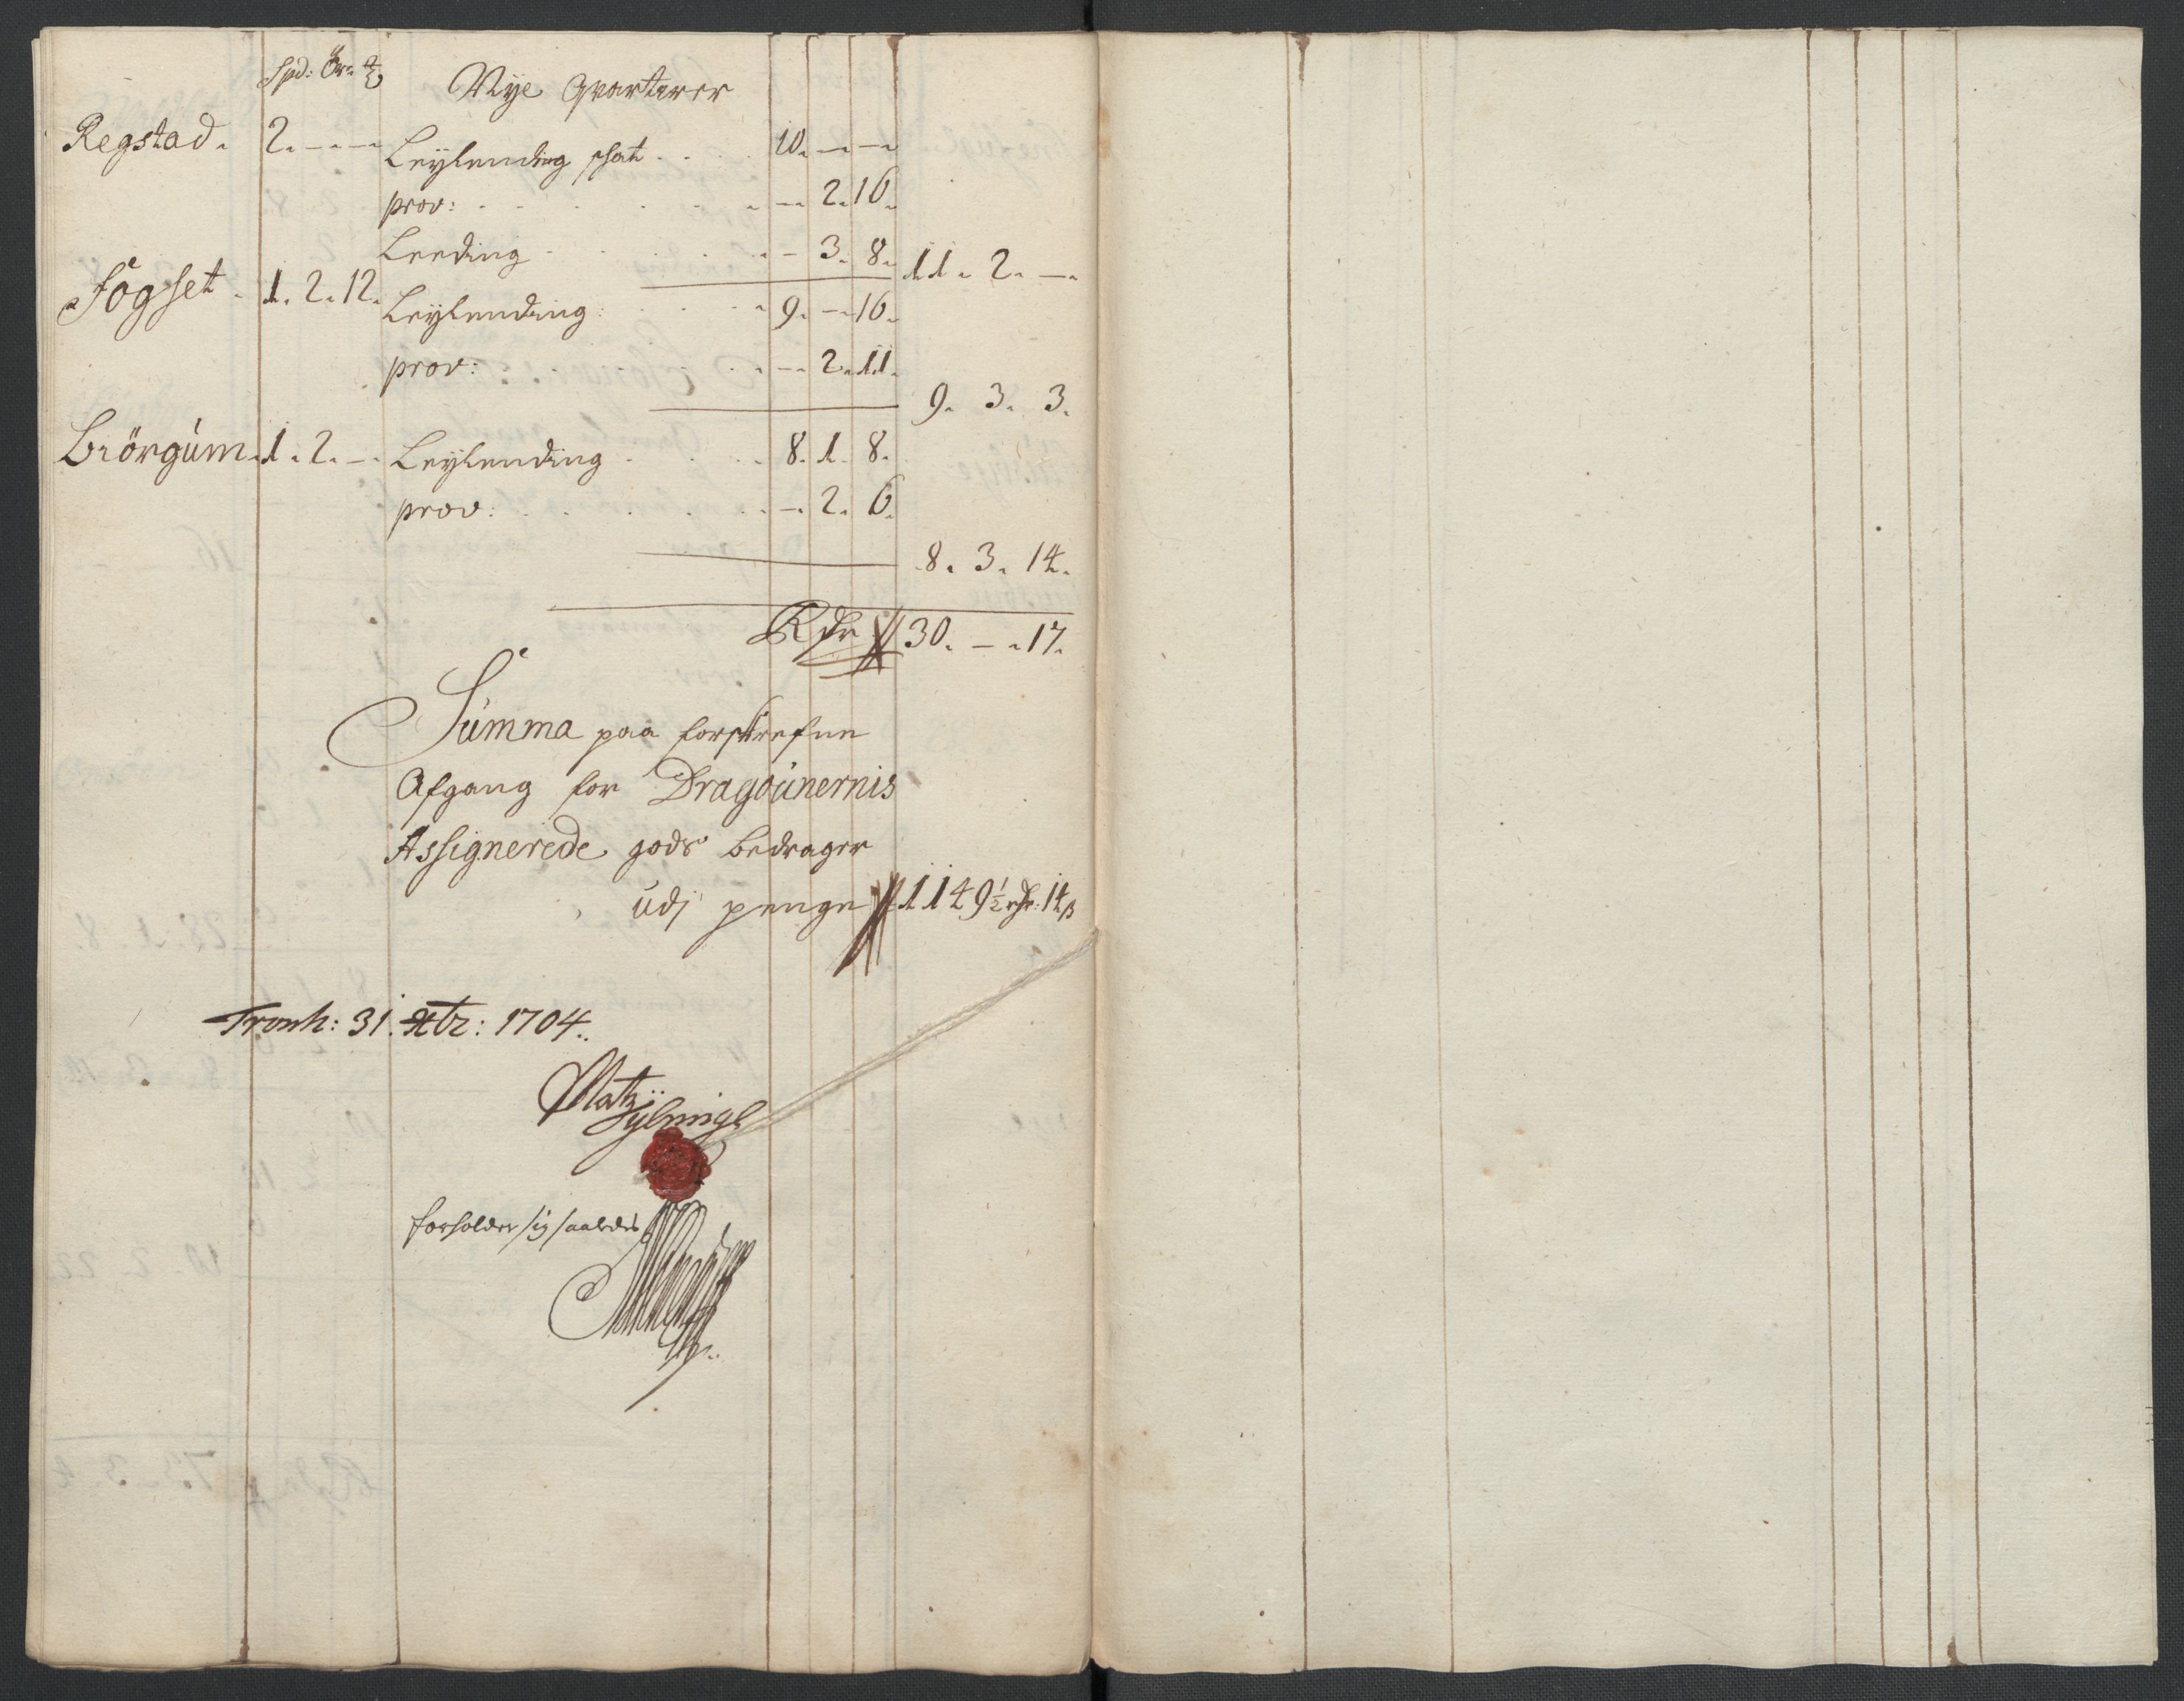 Spd: Ör:
Nye Qvarterer
Regstad. 2. — — Leylending schat . . 10. — —
prov: . . . . — 2. 16.
Leeding . . . . — 3. 8. 11. 2. —
Fogset. 1. 2. 12. Leylending: . . . 9. — 16.
prov: . . . — 2. 11.
9. 3. 3.
Biörgum. 1. 2. — Leylending . . . 8. 1. 8.
prov: . . . . — 2. 6.
8. 3. 14.
Rdr 30. — 17.
Summa paa forskrefne
Afgang for Dragounernis
Assignerede gods bedrager
udj penge 1149½ rdr: 14 β
Tronh: 31. Xbr: 1704.
forholder sig saaledis